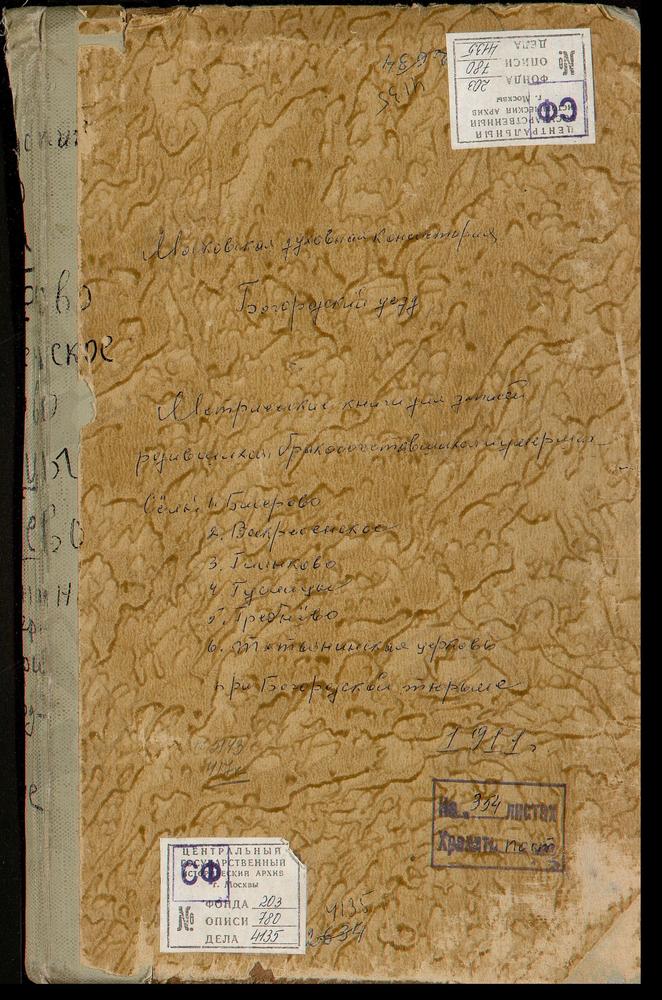 2634
4135
ЦЕНТРАЛЬНЫЙ
ГОСУДАРСТВЕННЫЙ
ИСТОРИЧЕСКИЙ АРХИВ
г. Москвы
СФ
№
ФОНДА 203
ОПИСИ 780
ДЕЛА 4135
Московская духовная консистория
Богородский уезд
Метрические книги для записей
родившихся, бракосочетавшихся и умерших
Сёлы: 1. Бисерово
2. Воскресенское
3. Глинково
4. Гуслицы
5. Гребнево
6. Татьянинская церковь
при Богородской тюрьме
1911 г.
На 354 листах
Хранить пост.
ЦЕНТРАЛЬНЫЙ
ГОСУДАРСТВЕННЫЙ
ИСТОРИЧЕСКИЙ АРХИВ
г. Москвы
СФ
№
ФОНДА 203
ОПИСИ 780
ДЕЛА 4135
4135
2634